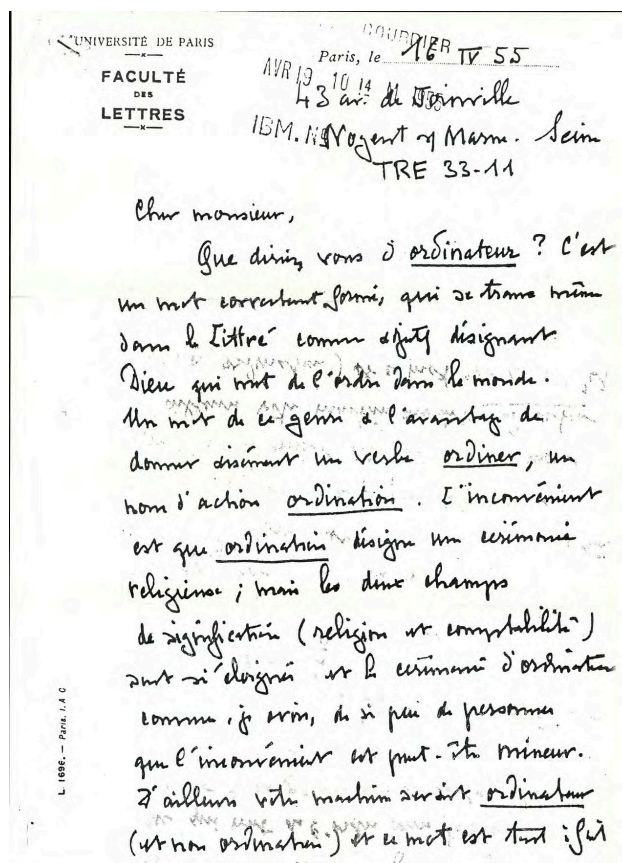 UNIVERSITÉ DE PARIS
FACULTÉ
DES
LETTRES
COURRIER
Paris, le 16 IV 55
AVR 19 10 14
43 av. de Joinville
IBM.
Nogent s/ Marne. Seine
TRE 33-11
Cher monsieur,
Que diriez vous d'ordinateur ? C'est
un mot correctement formé, qui se trouve même
dans le Littré comme adjectif désignant
Dieu qui met de l'ordre dans le monde.
Un mot de ce genre a l'avantage de
donner aisément un verbe ordiner, un
nom d'action ordination. L'inconvénient
est que ordination désigne une cérémonie
religieuse ; mais les deux champs
de signification (religion et comptabilité)
sont si éloignés et la cérémonie d'ordination
connue, je crois, de si peu de personnes
que l'inconvénient est peut-être mineur.
D'ailleurs votre machine serait ordinateur
(et non ordination) et ce mot est tout à fait
L. 1696. — Paris. I. A. C.